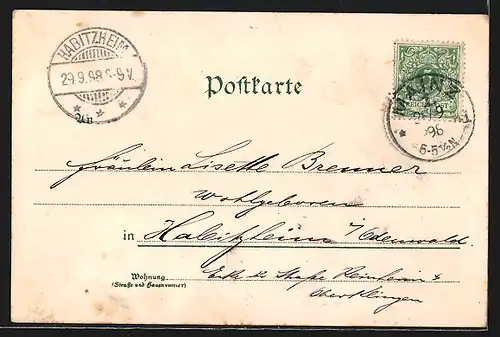 HABITZHEIM
29.9.98 8-9V.
Postkarte
MAINZ
REICHSPOST
An
Fräulein Lisette Brenner
Wohlgeboren
in Habitzheim i/Odenwald.
Wohnung
(Straße und Hausnummer)